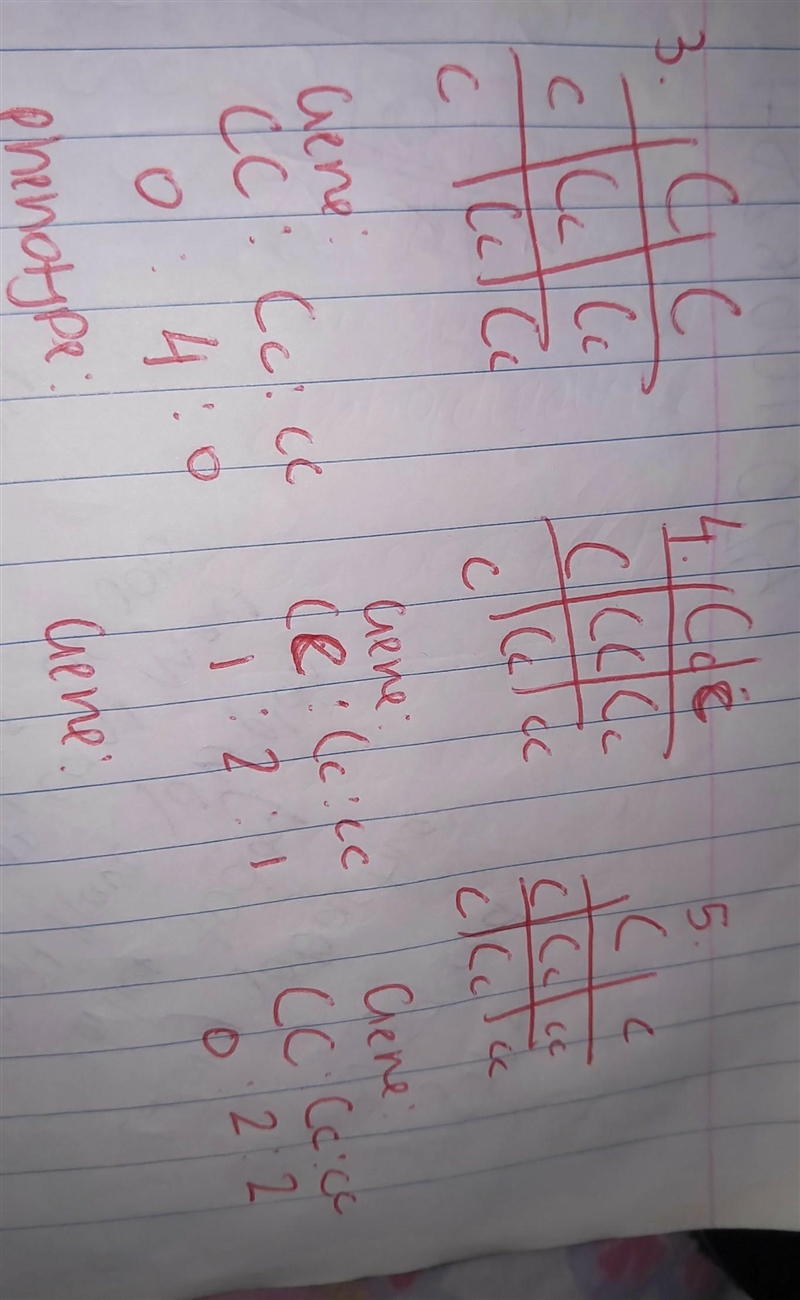 3.
C C
c Cc Cc
c Cc Cc
Gene:
CC : Cc : cc
0 : 4 : 0
phenotype:
4. C c
C CC Cc
c Cc cc
Gene:
CC : Cc : cc
1 : 2 : 1
Gene:
5.
C c
c Cc cc
c Cc cc
Gene:
CC : Cc : cc
0 : 2 : 2